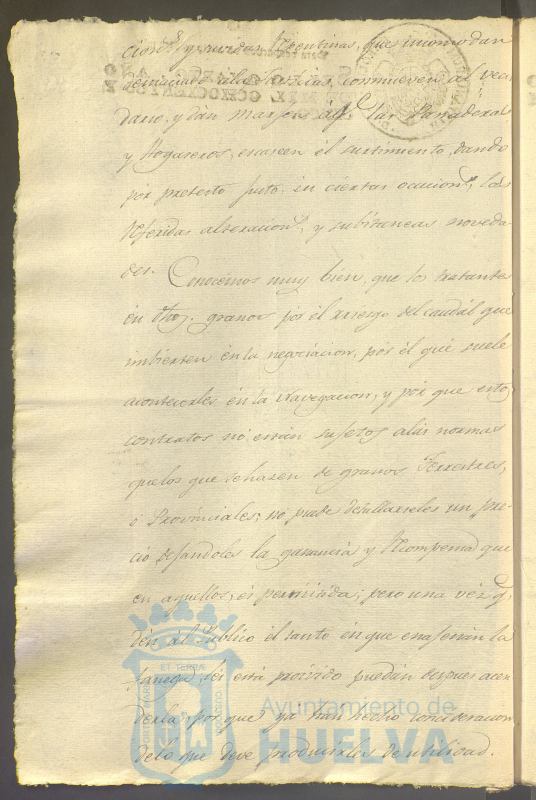 cion.s y suvidas repentinas, que incomodan
demaciado a la Justicia, conmueven al vecin
dario, y dan margen á q.e las Panaderas
y Hogaseros, escaseen el surtimiento, dando
por pretecto justo, en ciertas occacion.s las
referidas alteracion.s y subitaneas noveda
des. Conocemos muy bien, que los tratantes
en dhos. granos por el riesgo del caudál que
imbierten en la negociacion, por él que suele
acontecerles en la Navegacion, y por que estos
contratos no están sujetos alas normas
que los que se hazen de granos Terrestres,
ó Provinciales, no puede detallarseles un pre-
cio dejandoles la ganancia y recompensa que
en aquellos, es permitida; pero una véz q.e
dén al Publico el tanto en que
fanega, les está proivido puedan despues
por que ya han hecho concideracion
delo que deve producirles de utilidad.
Ayuntamiento de
HUELVA